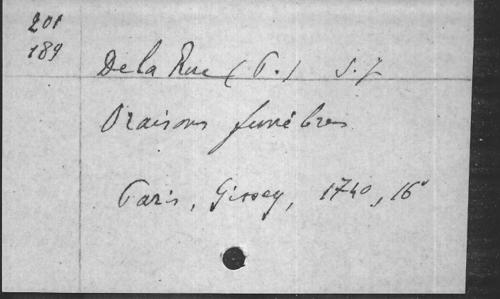 201
189
De la Rue (P.) S.J.
Oraisons funèbres
Paris, Gissey, 1740, 16°